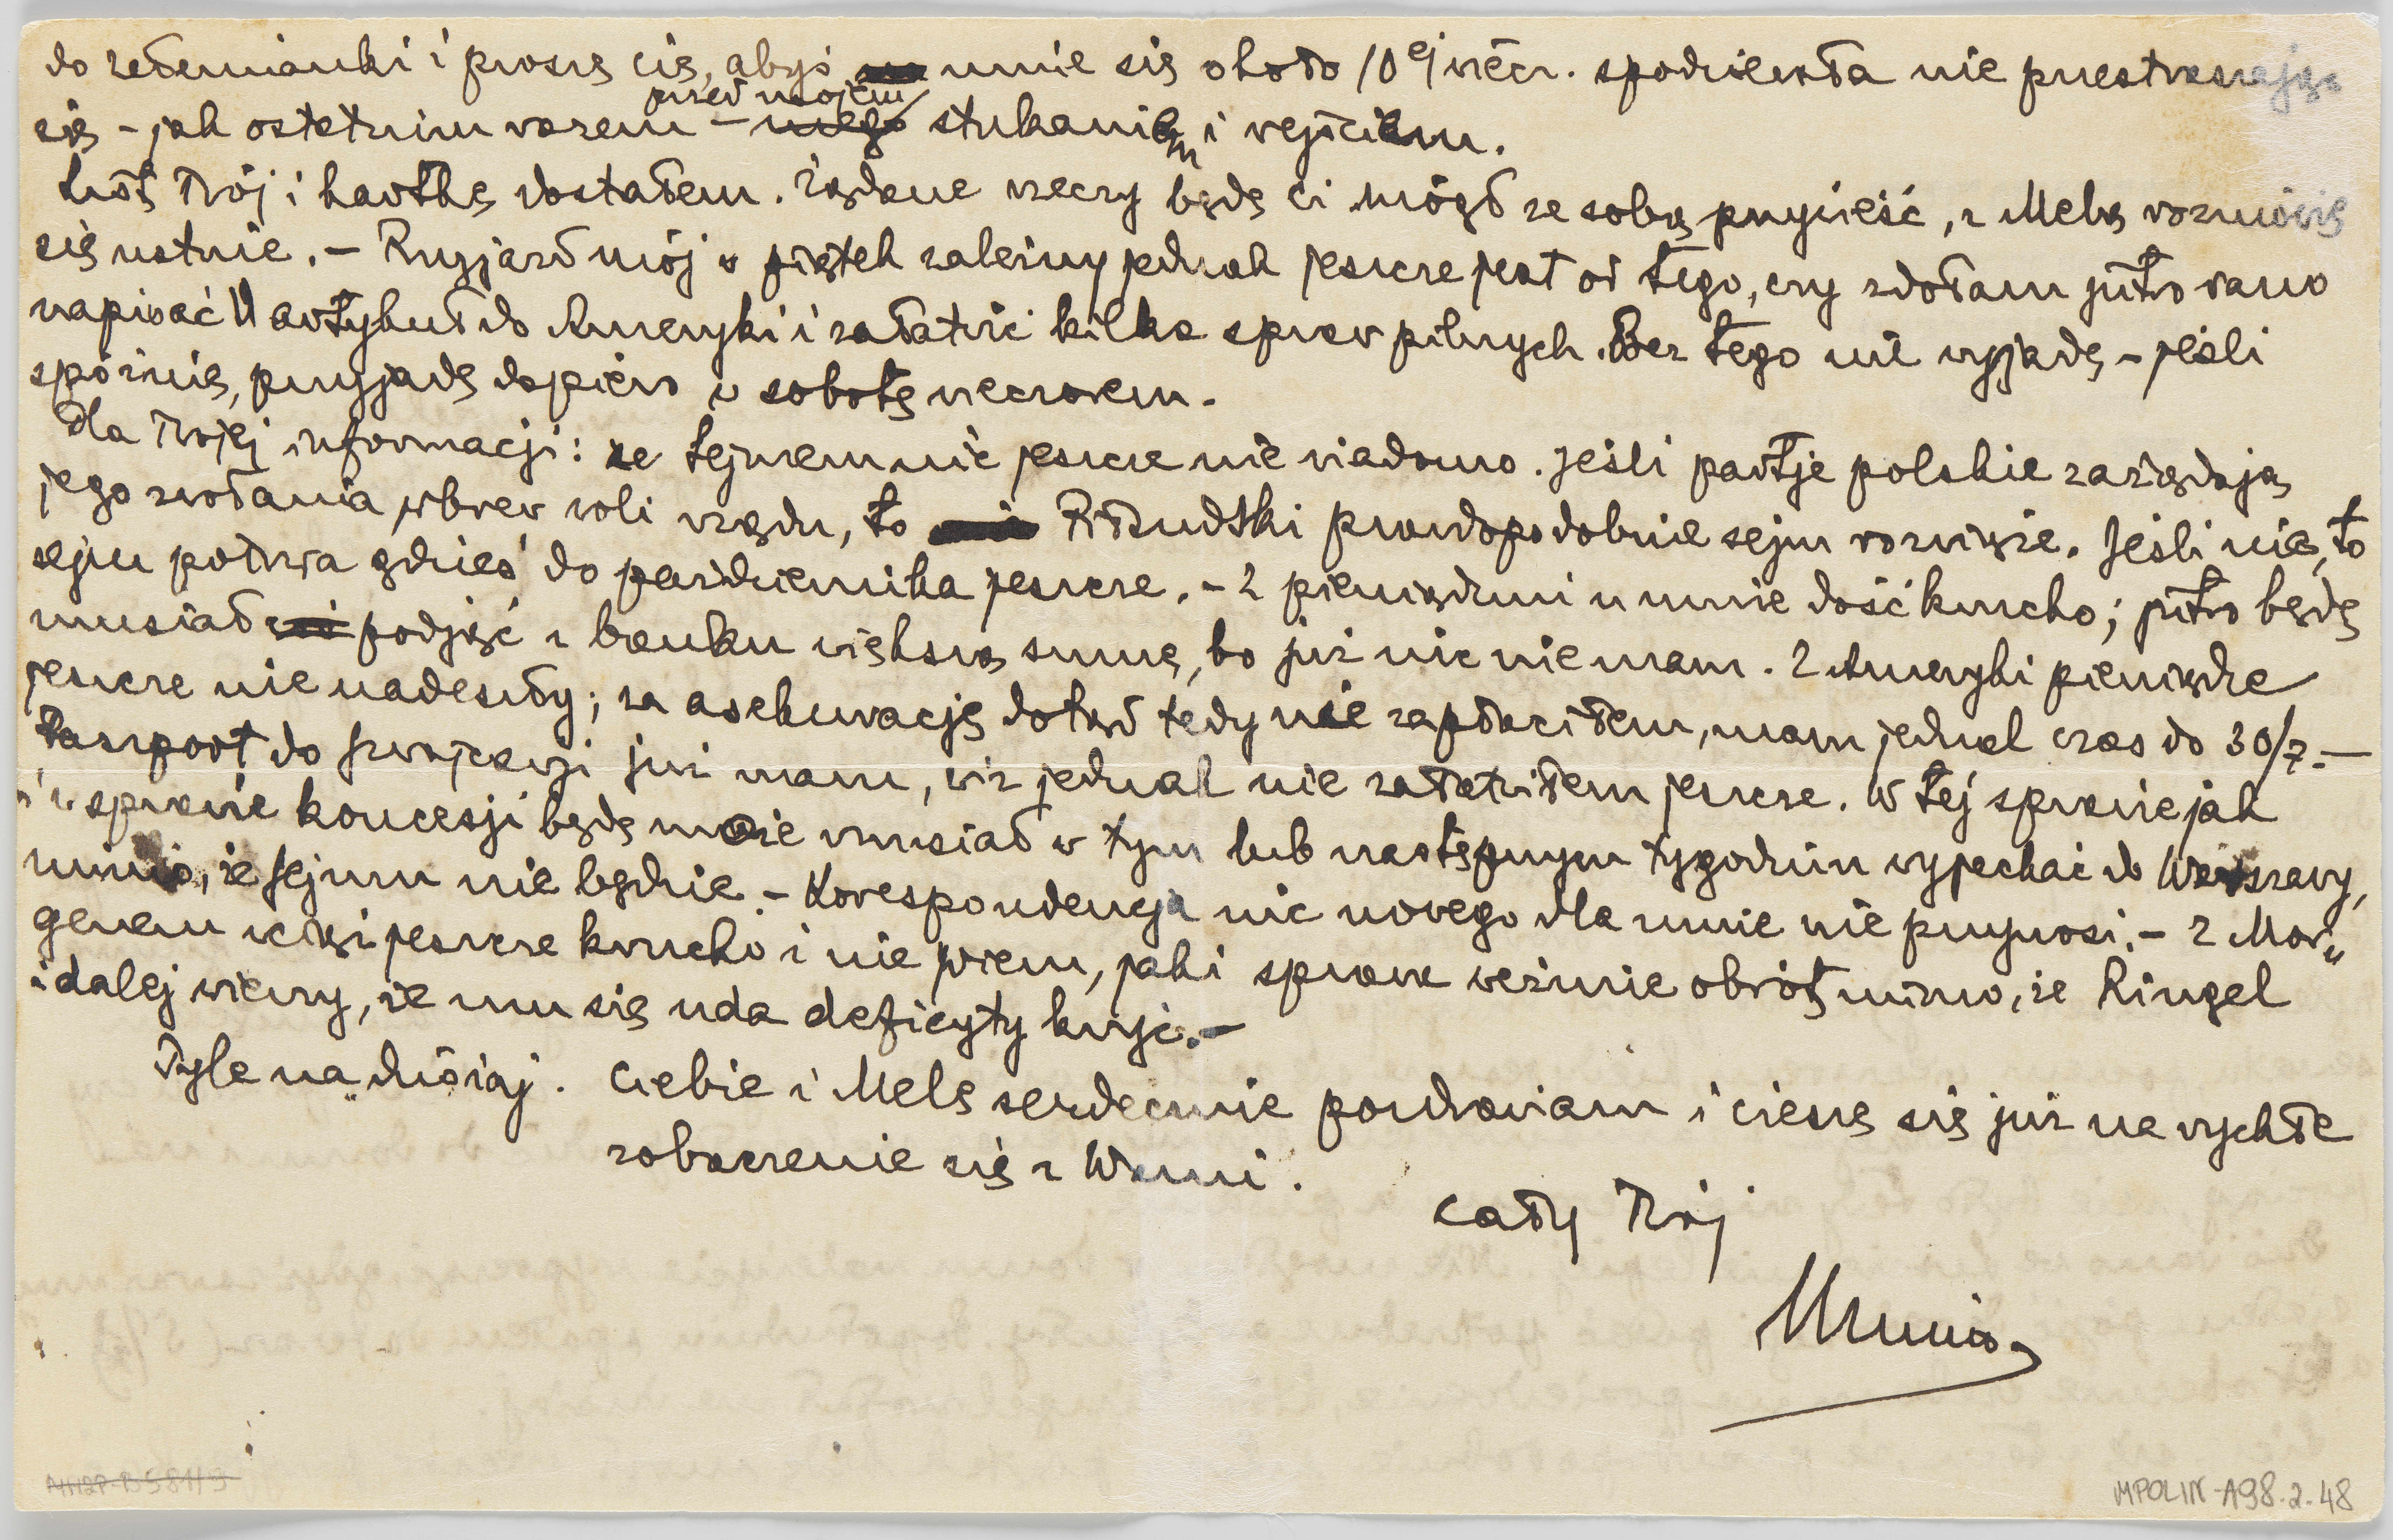 do Zełemianki i proszę cię, abyś mnie się około 10ej wiecz. spodziewała nie przestraszając
się – jak ostatnim razem – przed mojem stukaniem i wejściem.
List Twój i kartkę dostałem. Żądane rzeczy będę ci mógł ze sobą przynieść, z Melą rozmówię
się ustnie. – Przyjazd mój w piątek zależny jednak jeszcze jest od tego, czy zdołam jutro rano
napisać artykuł do Ameryki i załatwić kilka spraw pilnych. Bez tego nie wyjadę – jeśli
spóźnię, przyjadę dopiero w sobotę wieczorem.
Dla Twojej informacji: ze Sejmem nic jeszcze nie wiadomo. Jeśli partje polskie zażądają
jego zwołania wbrew woli rządu, to Piłsudski prawdopodobnie sejm rozwiąże. Jeśli nie, to
sejm potrwa gdzieś do października jeszcze. – Z pieniądzmi u mnie dość krucho; jutro będę
musiał podjąć z banku większą sumę, bo już nic nie mam. Z Ameryki pieniądze
jeszcze nie nadeszły; za asekurację dotąd tedy nie zapłaciłem, mam jednak czas do 30/7. –
Paszport do Szwajcarji już mam, wiz jednak nie załatwiłem jeszcze. W tej sprawie jak
i w sprawie koncesji będę może musiał w tym lub następnym tygodniu wyjechać do Warszawy,
mimo, że Sejmu nie będzie. – Korespondencja nic nowego dla mnie nie przynosi. – Z Mor„
genem wciąż jeszcze krucho i nie wiem, jaki sprawa weźmie obrót mimo, że Ringel
i dalej wierzy, że mu się uda deficyty kryć. –
Tyle na dzisiaj. Ciebie i Melę serdecznie pozdrawiam i cieszę się już na rychłe
zobaczenie się z Wami.
Cały Twój
Munio
MPOLIN-A98.2.48